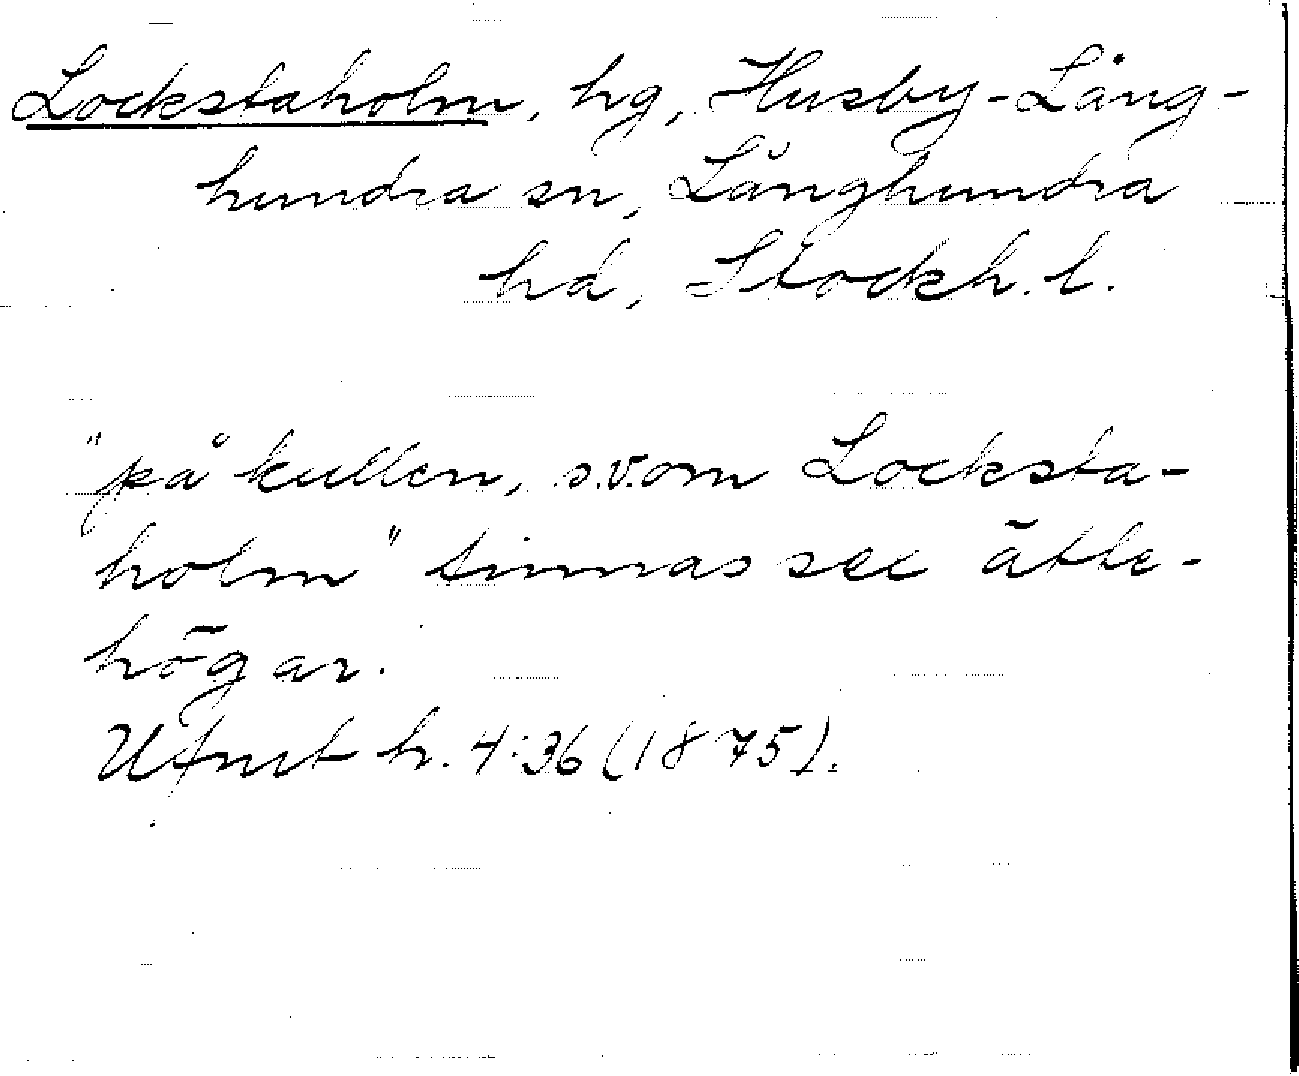 Lockstaholm, hg, Husby-Lång-
hundra sn, Långhundra
hd, Stockh. l.
"på kullen, s.v.om Locksta-
holm" finnas sex ätte-
högar.
Ufmt h. 4:36 (1875).